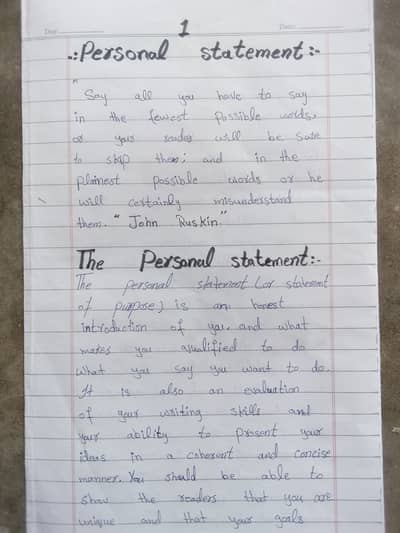 Day:
Date:
1
.:Personal statement:-
"
Say all you have to say
in the fewest Possible words,
or your reader will be sure
to skip them; and in the
Plainest possible words or he
will certainly misunderstand
them. " John Ruskin."
The Personal statement:-
The personal statement (or statement
of purpose) is an honest
introduction of you, and what
makes you qualified to do
what you say you want to do.
It is also an evaluation
of your writing skills and
your ability to present your
ideas in a coherent and concise
manner. You should be able to
show the readers that you are
unique and that your goals